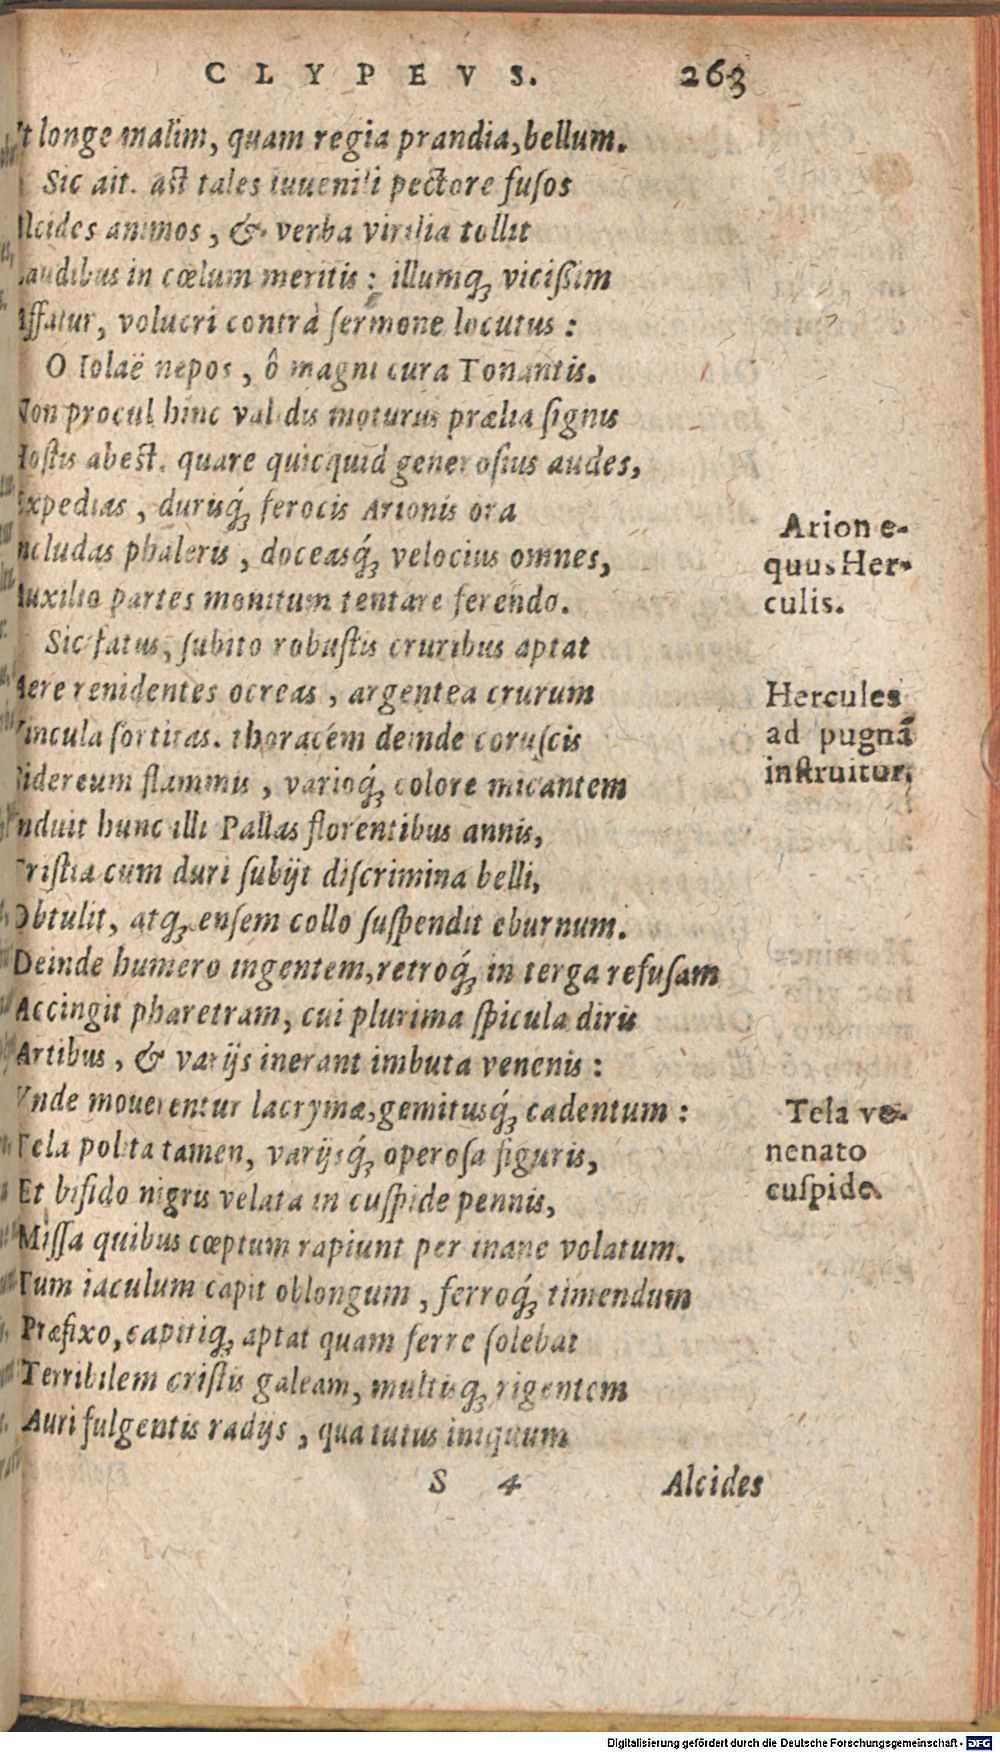 CLYPEVS. 263
t longe malim, quam regia prandia, bellum.
Sic ait. ast tales iuuenili pectore fusos
lcides animos, & verba virilia tollit
audibus in cœlum meritis: illumq́; vicißim
ffatur, volucri contrà sermone locutus:
O Iolaë nepos, ô magni cura Tonantis.
Non procul hinc validis moturus prælia signis
Hostis abest. quare quicquid generosius audes,
Expedias, duriq́; ferocis Arionis ora
ncludas phaleris, doceasq́; velocius omnes,
Auxilio partes monitum tentare ferendo.
Arion e-
quus Her-
culis.
Sic fatus, subito robustis cruribus aptat
Aere renidentes ocreas, argentea crurum
Vincula sortitas. thoracém deinde coruscis
Sidereum flammis, varioq́; colore micantem
nduit hunc illi Pallas florentibus annis,
Tristia cum duri subijt discrimina belli,
Obtulit, atq; ensem collo suspendit eburnum.
Hercules
ad pugnã
instruitur.
Deinde humero ingentem, retroq́; in terga refusam
Accingit pharetram, cui plurima spicula diris
Artibus, & varijs inerant imbuta venenis:
Vnde mouerentur lacrymæ, gemitusq́; cadentum:
Tela polita tamen, varijsq́; operosa figuris,
Et bifido nigris velata in cuspide pennis,
Missa quibus cœptum rapiunt per inane volatum.
Tela ve-
nenato
cuspide.
Tum iaculum capit oblongum, ferroq́; timendum
Præfixo, capitiq; aptat quam ferre solebat
Terribilem cristis galeam, multisq; rigentem
Auri fulgentis radijs, qua tutus iniquum
S 4 Alcides
Digitalisierung gefördert durch die Deutsche Forschungsgemeinschaft - DFG